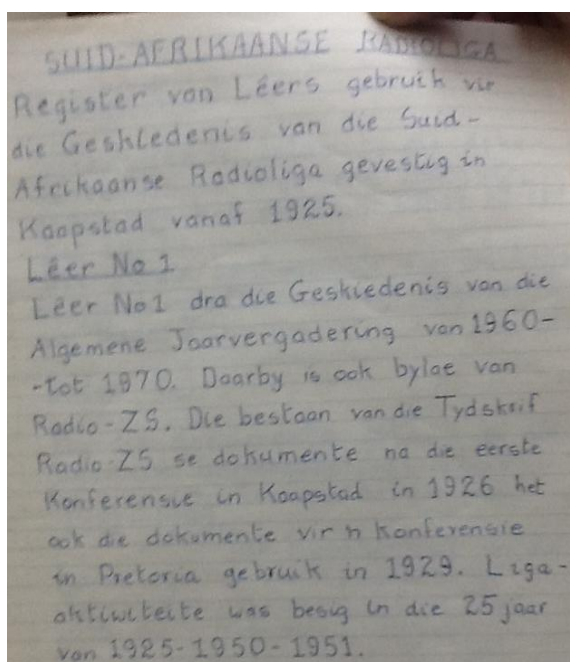 SUID-AFRIKAANSE RADIOLIGA
Register van Lêers gebruik vir
die Geskiedenis van die Suid-
Afrikaanse Radioliga gevestig in
Kaapstad vanaf 1925.
Lêer No 1
Lêer No1 dra die Geskiedenis van die
Algemene Jaarvergadering van 1960-
-tot 1970. Daarby is ook bylae van
Radio-ZS. Die bestaan van die Tydskrif
Radio-ZS se dokumente na die eerste
Konferensie in Kaapstad in 1926 het
ook die dokumente vir 'n Konferensie
in Pretoria gebruik in 1929. Liga-
aktiwiteite was besig in die 25 jaar
van 1925-1950-1951.